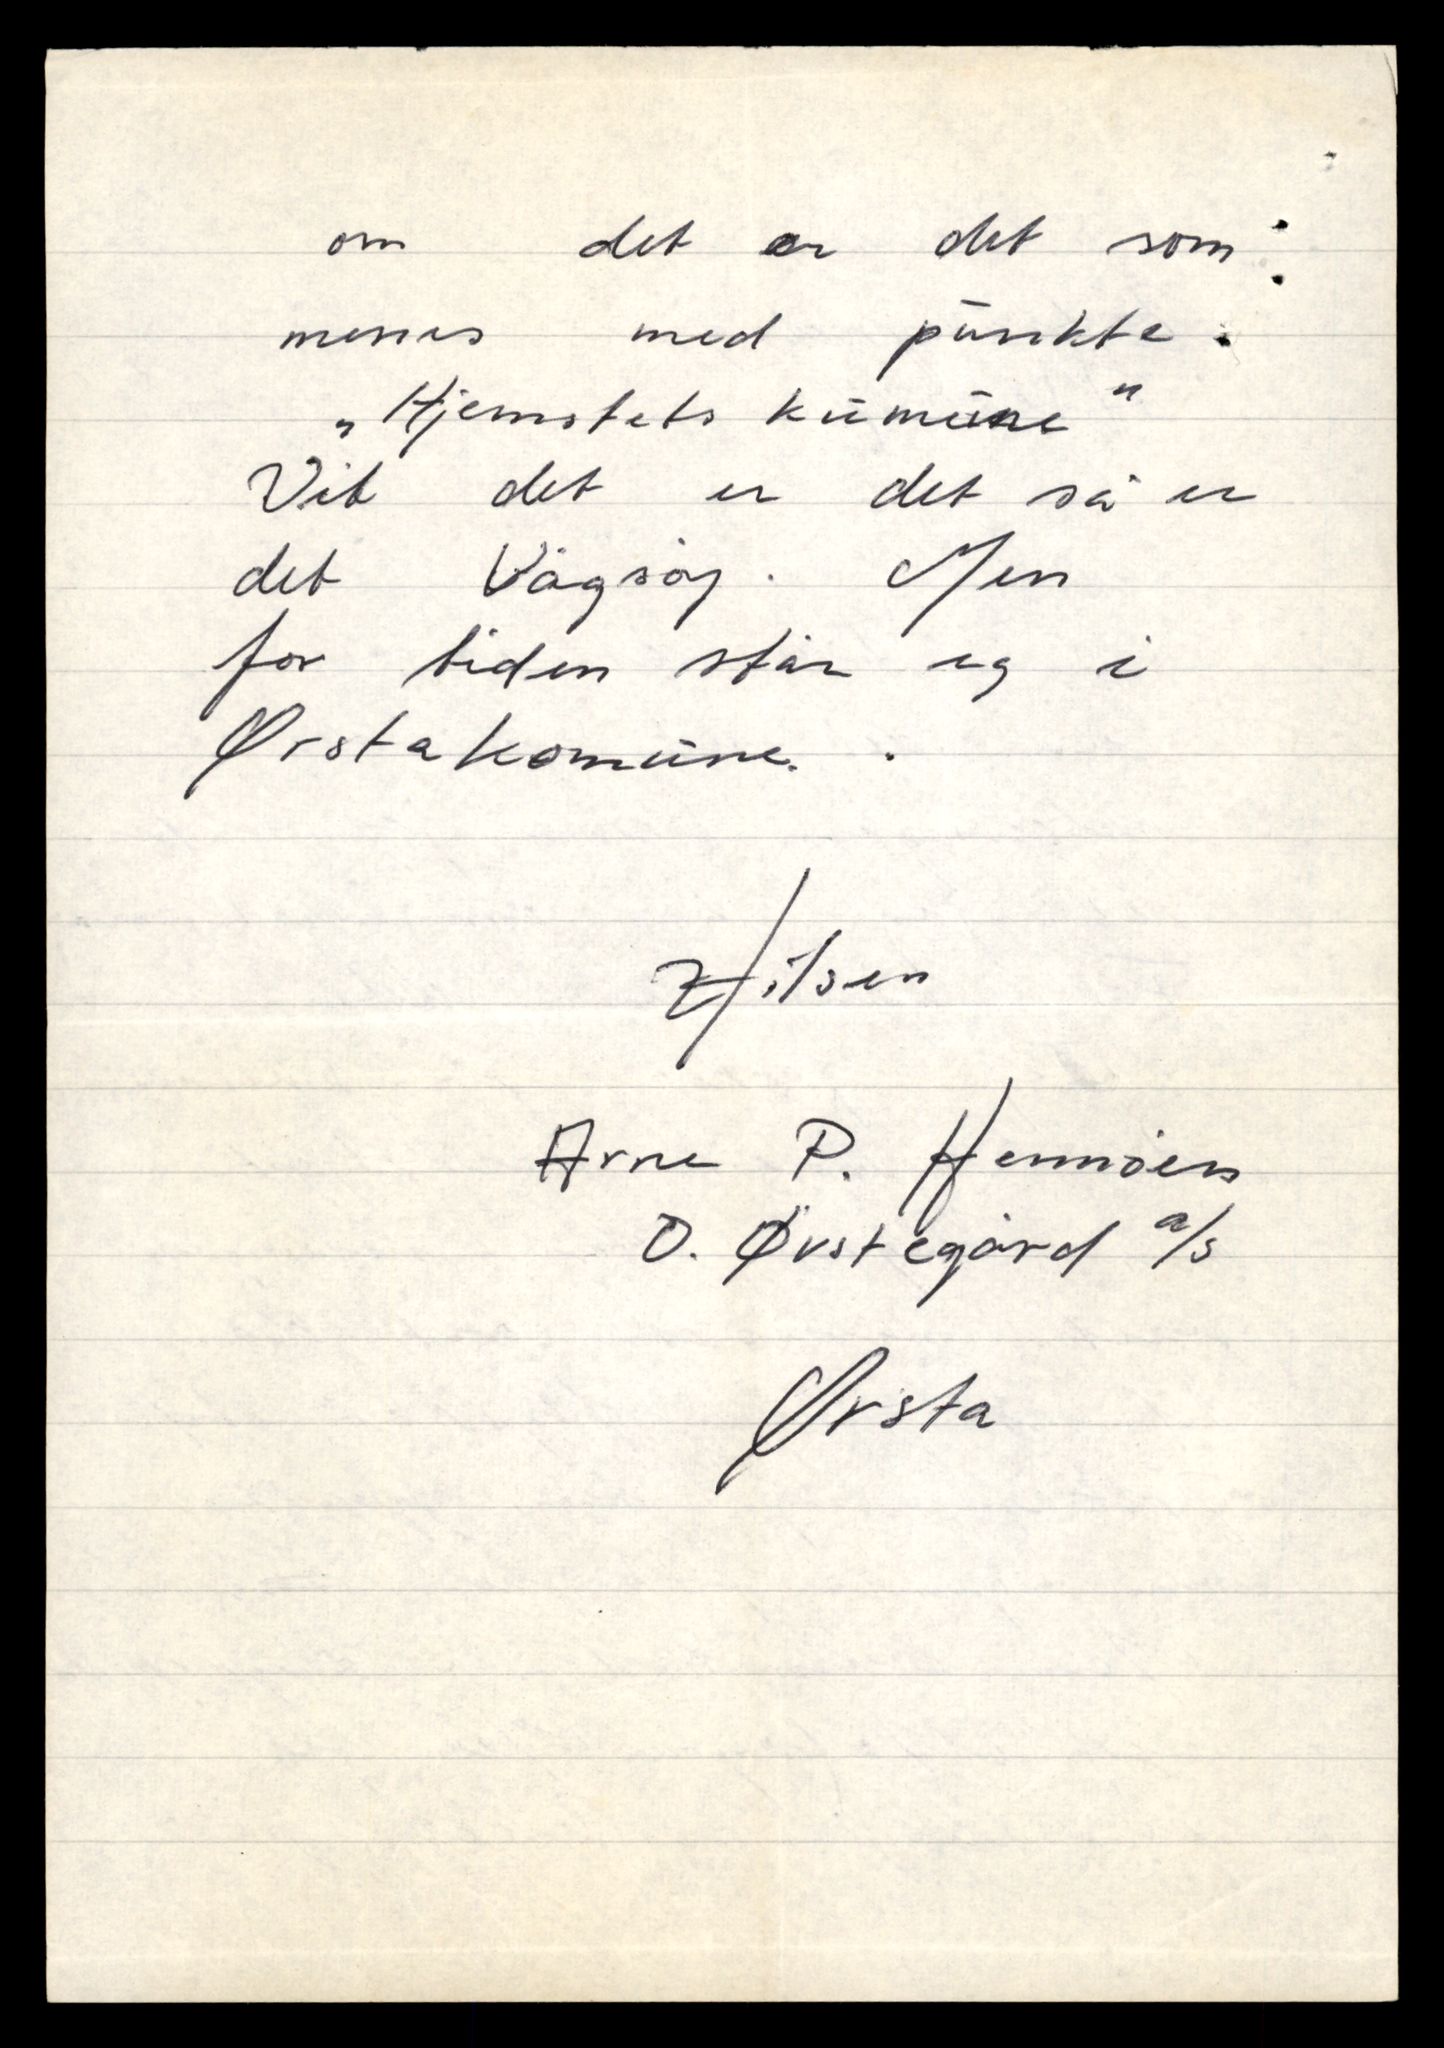 om det er det som
menes med punkte.
„Hjemstets kumune"
Vit det er det så er
det Vågsøy. Men
for tiden står eg i
Ørsta komune.
Hilsen
Arne P. Hennøen
O. Øvstegård a/s
Ørsta